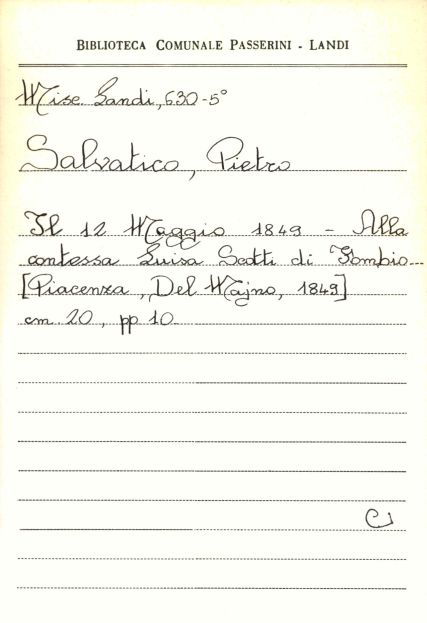 BIBLIOTECA COMUNALE PASSERINI - LANDI
Misc. Landi, 630-5°
Salvatico, Pietro
Il 12 Maggio 1849 - Alla
contessa Luisa Scotti di Fombio.-
[Piacenza, Del Majno, 1849]
cm 20, pp 10